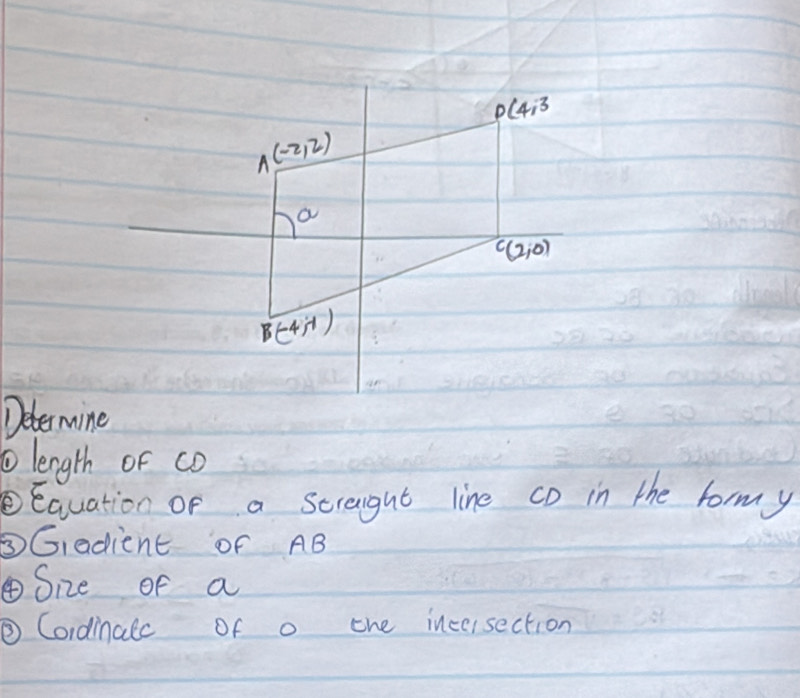 D(4;3
A(-2;2)
a
C(2;0)
B(-4;-1)
Determine
① length OF CD
② Equation OF a straight line CD in the form y
③ Gradient OF AB
④ Size OF a
⑤ Cordinate OF O the intersection